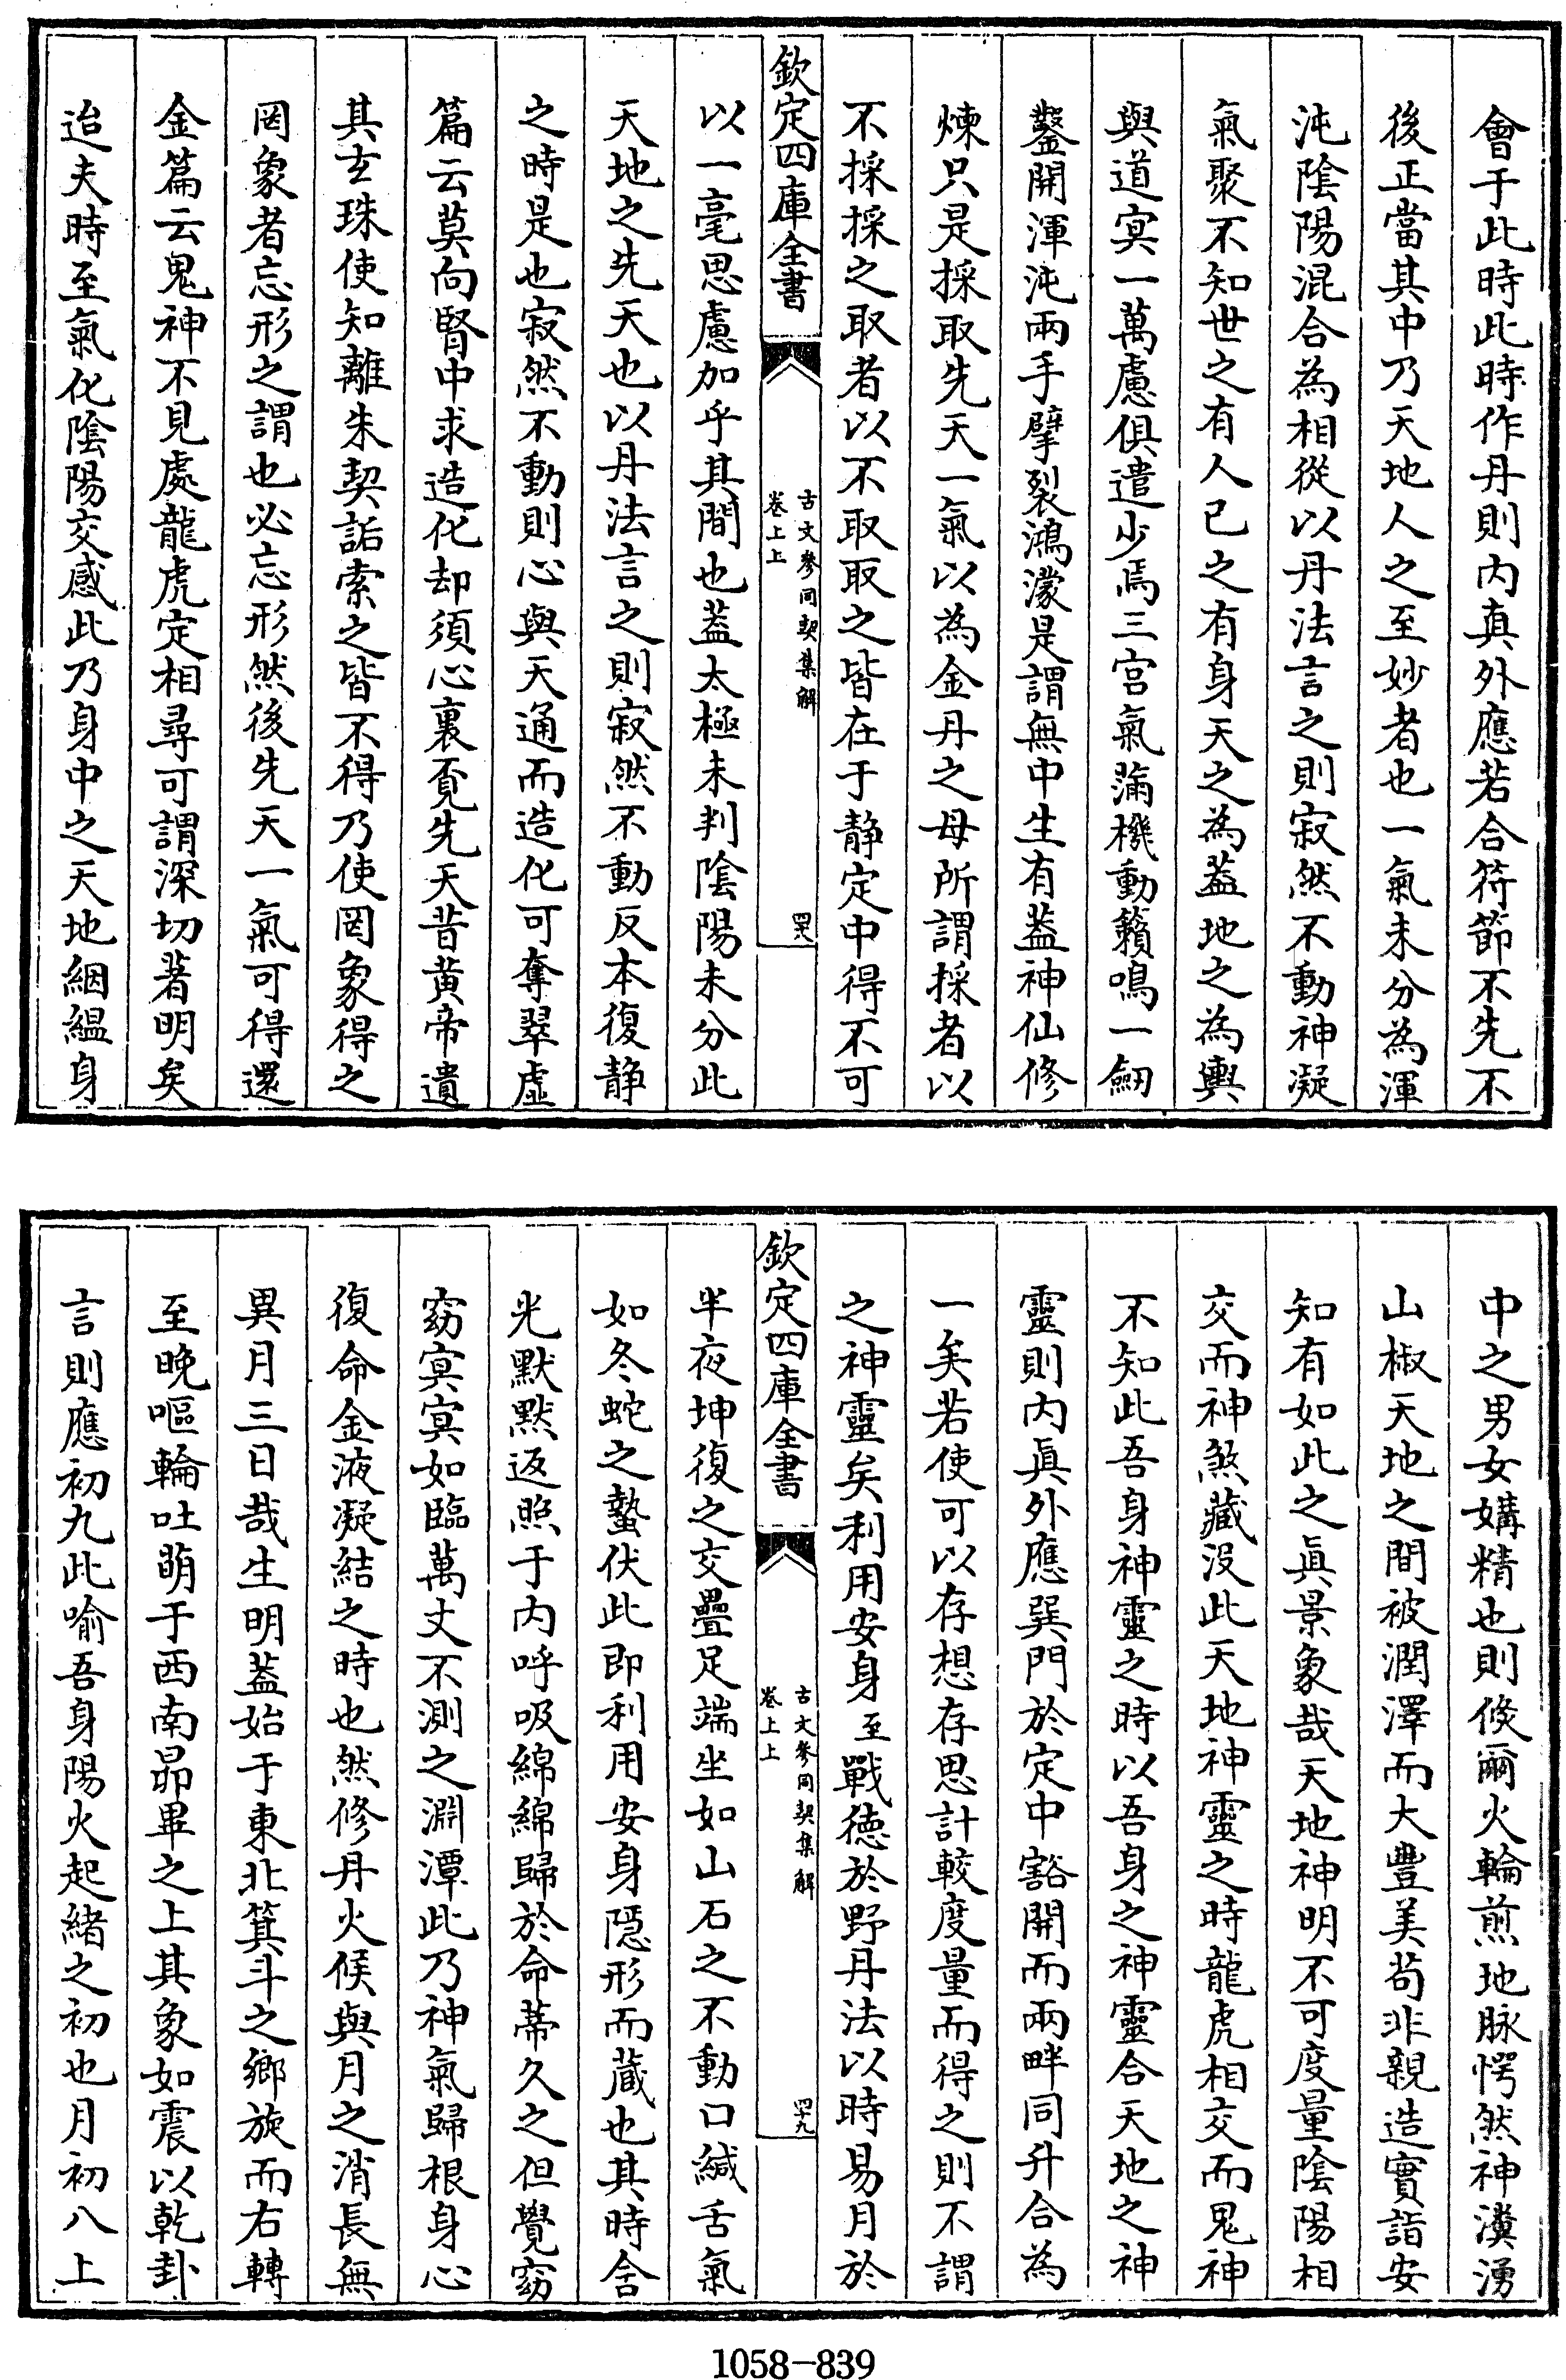 會于此時此時作丹則内真外應若合符節不先不
後正當其中乃天地人之至妙者也一氣未分為渾
沌陰陽混合為相從以丹法言之則寂然不動神凝
氣聚不知世之有人已之有身天之為蓋地之為輿
與道㝠一萬慮俱遣少焉三宫氣滿機動籟鳴一劒
鑿開渾沌兩手擘裂鴻濛是謂無中生有蓋神仙修
煉只是採取先天一氣以為金丹之母所謂採者以
不採採之取者以不取取之皆在于静定中得不可
欽定四庫全書
古文參同契集解
卷上上
四十八
以一毫思慮加乎其間也蓋太極未判陰陽未分此
天地之先天也以丹法言之則寂然不動反本復静
之時是也寂然不動則心與天通而造化可奪翠虛
篇云莫向腎中求造化却須心裏覔先天昔黄帝遺
其𤣥珠使知離朱契詬索之皆不得乃使罔象得之
罔象者忘形之謂也必忘形然後先天一氣可得還
金篇云鬼神不見處龍虎定相尋可謂深切著明矣
迨夫時至氣化陰陽交感此乃身中之天地絪縕身
中之男女媾精也則倐爾火輪煎地脉愕然神瀵湧
山椒天地之間被潤澤而大豐美苟非親造實詣安
知有如此之眞景象哉天地神明不可度量陰陽相
交而神煞藏没此天地神靈之時龍虎相交而鬼神
不知此吾身神靈之時以吾身之神靈合天地之神
靈則内眞外應巽門於定中豁開而兩畔同升合為
一矣若使可以存想存思計較度量而得之則不謂
之神靈矣利用安身至戰德於野丹法以時易月於
欽定四庫全書
古文參同契集解
卷上上
四十九
半夜坤復之交疊足端坐如山石之不動口緘舌氣
如冬蛇之蟄伏此即利用安身隱形而蔵也其時含
光默默返照于内呼吸綿綿歸於命蒂久之但覺窈
窈㝠㝠如臨萬丈不測之淵潭此乃神氣歸根身心
復命金液凝結之時也然修丹火候與月之消長無
異月三日哉生明蓋始于東北箕斗之鄉旋而右轉
至晚嘔輪吐萌于西南昴畢之上其象如震以乾卦
言則應初九此喻吾身陽火起緒之初也月初八上
1058-839